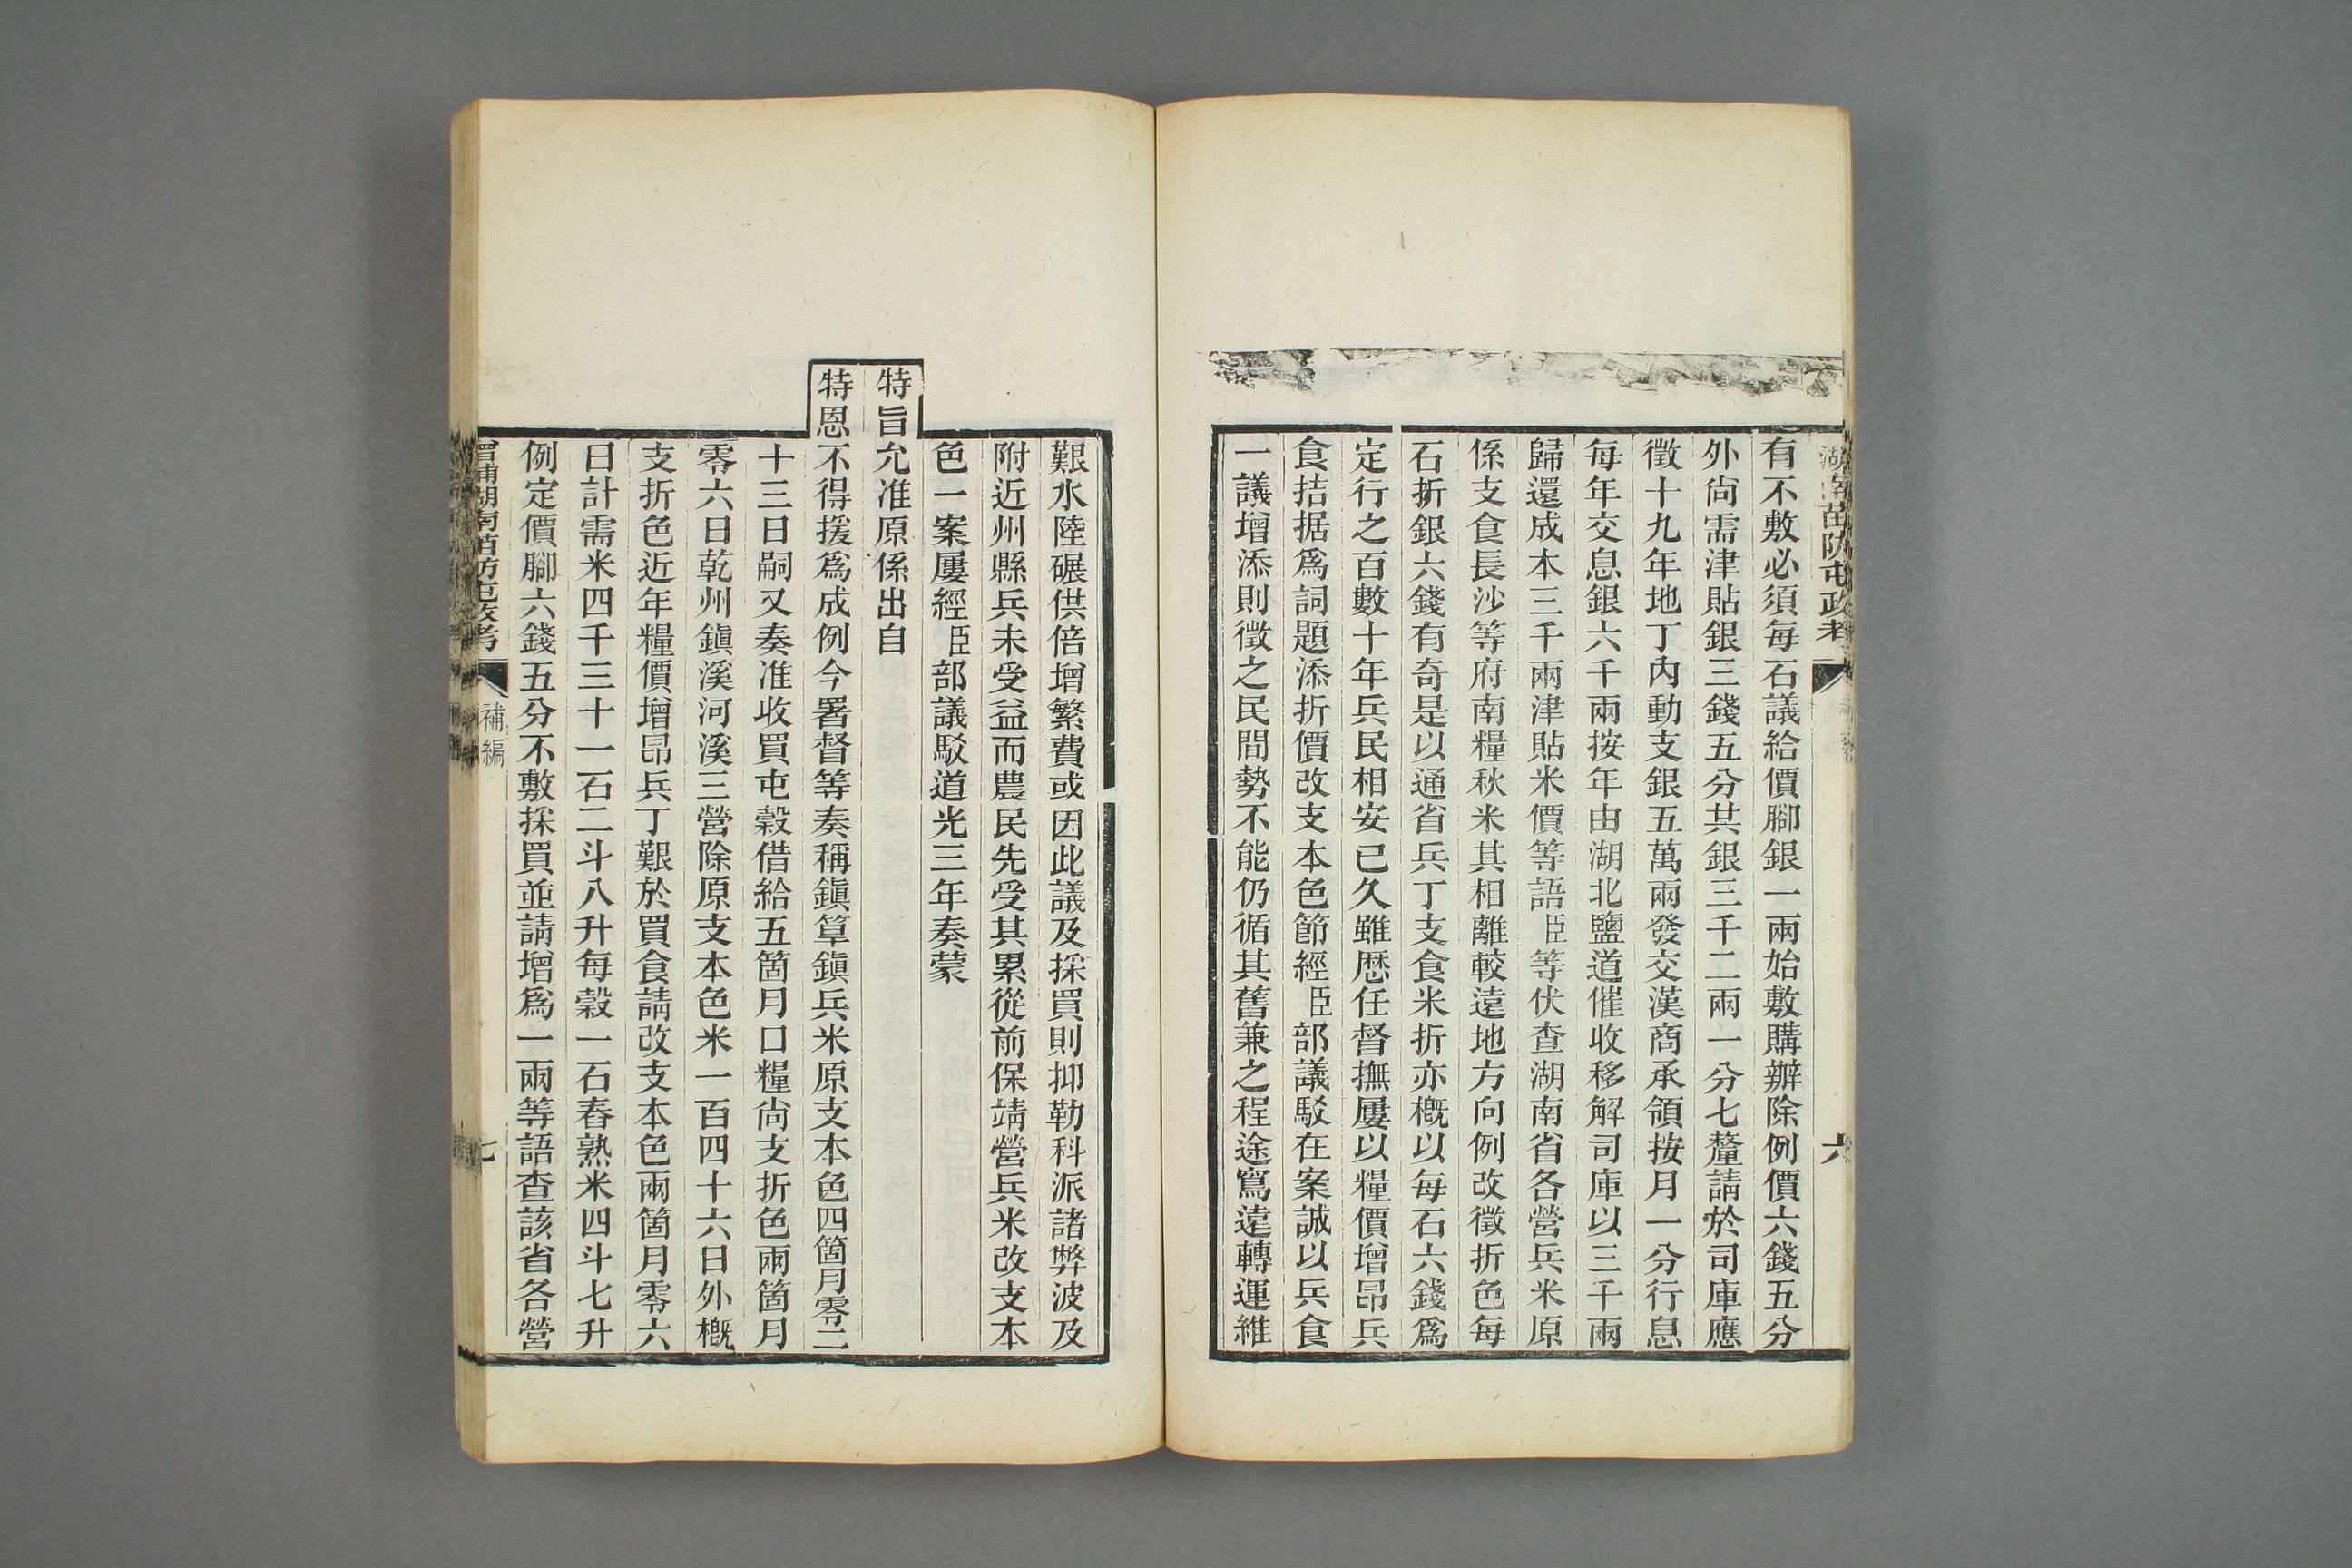 湖南苗防屯政考
六
有不敷必須每石議給價腳銀一兩始敷購辦除例價六錢五分
外尙需津貼銀三錢五分共銀三千二兩一分七釐請於司庫應
徵十九年地丁內動支銀五萬兩發交漢商承領按月一分行息
每年交息銀六千兩按年由湖北鹽道催收移解司庫以三千兩
歸還成本三千兩津貼米價等語臣等伏查湖南省各營兵米原
係支食長沙等府南糧秋米其相離較遠地方向例改徵折色每
石折銀六錢有奇是以通省兵丁支食米折亦概以每石六錢爲
定行之百數十年兵民相安已久雖歷任督撫屢以糧價增昻兵
食拮据爲詞題添折價改支本色節經臣部議駁在案誠以兵食
一議增添則徵之民間勢不能仍循其舊兼之程途寫遠轉運維
艱水陸碾供倍增繁費或因此議及採買則抑勒科派諸弊波及
附近州縣兵未受益而農民先受其累從前保靖營兵米改支本
色一案屢經臣部議駁道光三年奏蒙
特旨允准原係出自
特恩不得援爲成例今署督等奏稱鎭筸鎭兵米原支本色四箇月零二
十三日嗣又奏准收買屯穀借給五箇月口糧尙支折色兩箇月
零六日乾州鎭溪河溪三營除原支本色米一百四十六日外概
支折色近年糧價增昻兵丁艱於買食請改支本色兩箇月零六
日計需米四千三十一石二斗八升每穀一石舂熟米四斗七升
例定價腳六錢五分不敷採買並請增爲一兩等語查該省各營
湖南苗防屯政考
補編
七